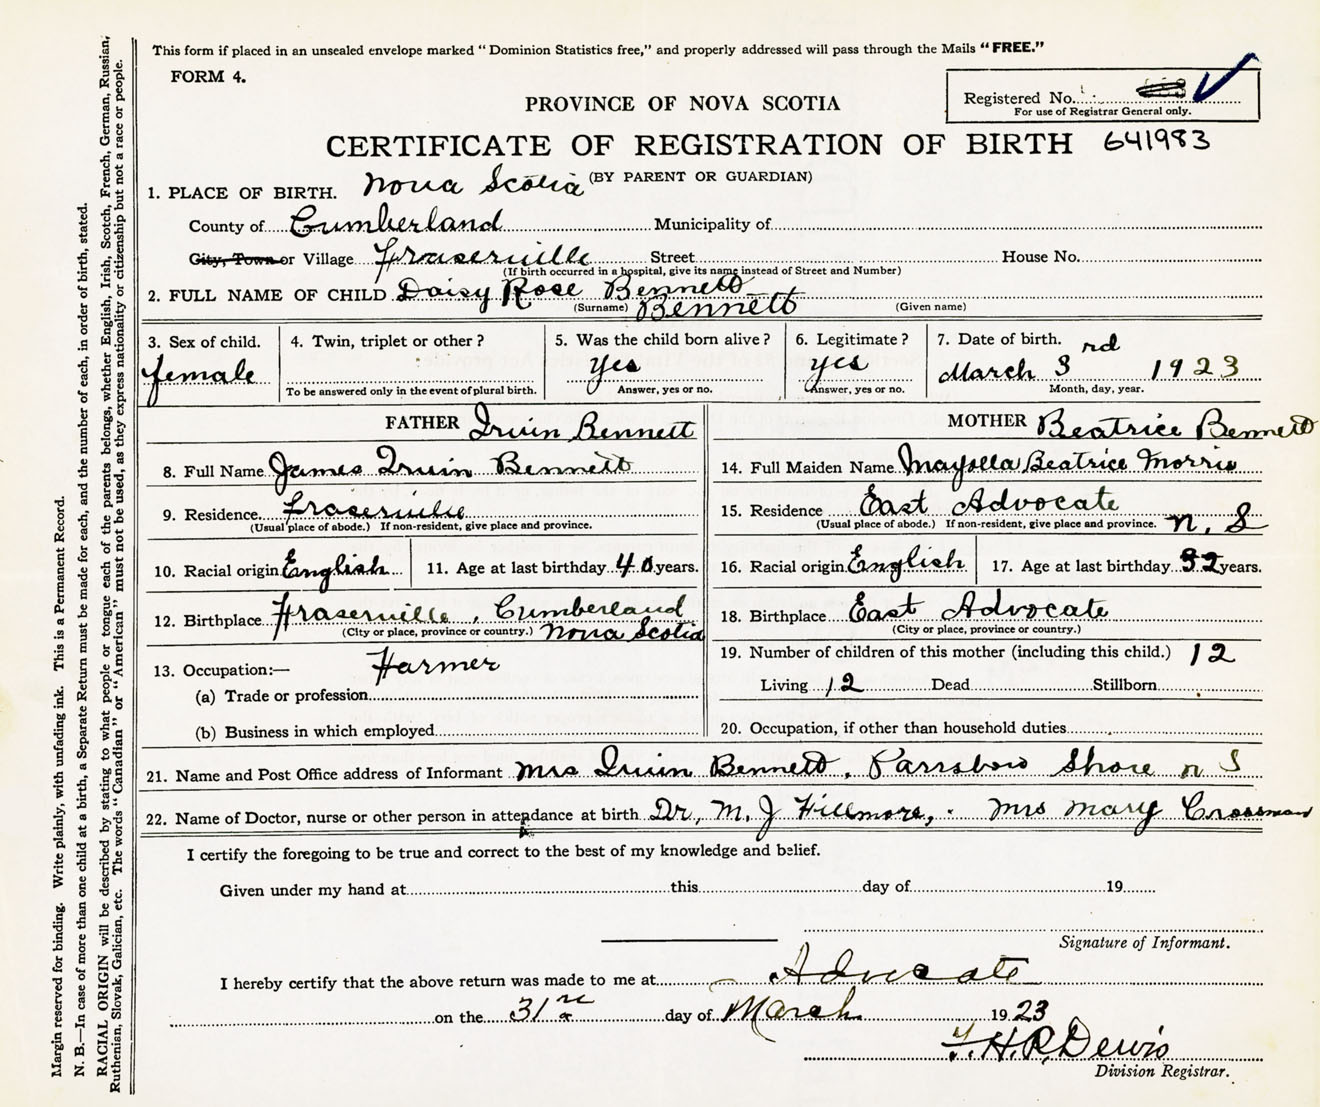 This form if placed in an unsealed envelope marked "Dominion Statistics free," and properly addressed will pass through the Mails "FREE."
FORM 4.
Registered No.
For use of Registrar General only.
PROVINCE OF NOVA SCOTIA
CERTIFICATE OF REGISTRATION OF BIRTH 641983
(BY PARENT OR GUARDIAN)
1. PLACE OF BIRTH. Nova Scotia
County of Cumberland Municipality of
City, Town or Village Fraserville Street House No.
(If birth occurred in a hospital, give its name instead of Street and Number)
2. FULL NAME OF CHILD Daisy Rose Bennett
(Surname) Bennett (Given name)
3. Sex of child. female
4. Twin, triplet or other?
To be answered only in the event of plural birth.
5. Was the child born alive? Yes
Answer, yes or no.
6. Legitimate? yes
Answer, yes or no.
7. Date of birth. March 3rd 1923
Month, day, year.
FATHER Irvin Bennett
8. Full Name James Irvin Bennett
9. Residence. Fraserville
(Usual place of abode.) If non-resident, give place and province.
10. Racial origin English 11. Age at last birthday 40 years.
12. Birthplace Fraserville, Cumberland
(City or place, province or country.) Nova Scotia
13. Occupation:— Farmer
(a) Trade or profession
(b) Business in which employed
MOTHER Beatrice Bennett
14. Full Maiden Name Beatrice Morris
15. Residence East Advocate
(Usual place of abode.) If non-resident, give place and province. N. S
16. Racial origin English 17. Age at last birthday 32 years.
18. Birthplace East Advocate
(City or place, province or country.)
19. Number of children of this mother (including this child.) 12
Living 12 Dead Stillborn
20. Occupation, if other than household duties
21. Name and Post Office address of Informant Mrs Irvin Bennett, Parrsboro Shore N S
22. Name of Doctor, nurse or other person in attendance at birth Dr, M. J Hillmore, . Mrs Mary Crossman
I certify the foregoing to be true and correct to the best of my knowledge and belief.
Given under my hand at this day of 19
Signature of Informant.
I hereby certify that the above return was made to me at Advocate
on the 31 day of March 1923
H. R. Dewis
Division Registrar.
Margin reserved for binding. Write plainly, with unfading ink. This is a Permanent Record.
N. B.—In case of more than one child at a birth, a Separate Return must be made for each, and the number of each, in order of birth, stated.
RACIAL ORIGIN will be described by stating to what people or tongue each of the parents belongs, whether English, Irish, Scotch, French, German, Russian,
Ruthenian, Slovak, Galician, etc. The words "Canadian" or "American" must not be used, as they express nationality or citizenship but not a race or people.